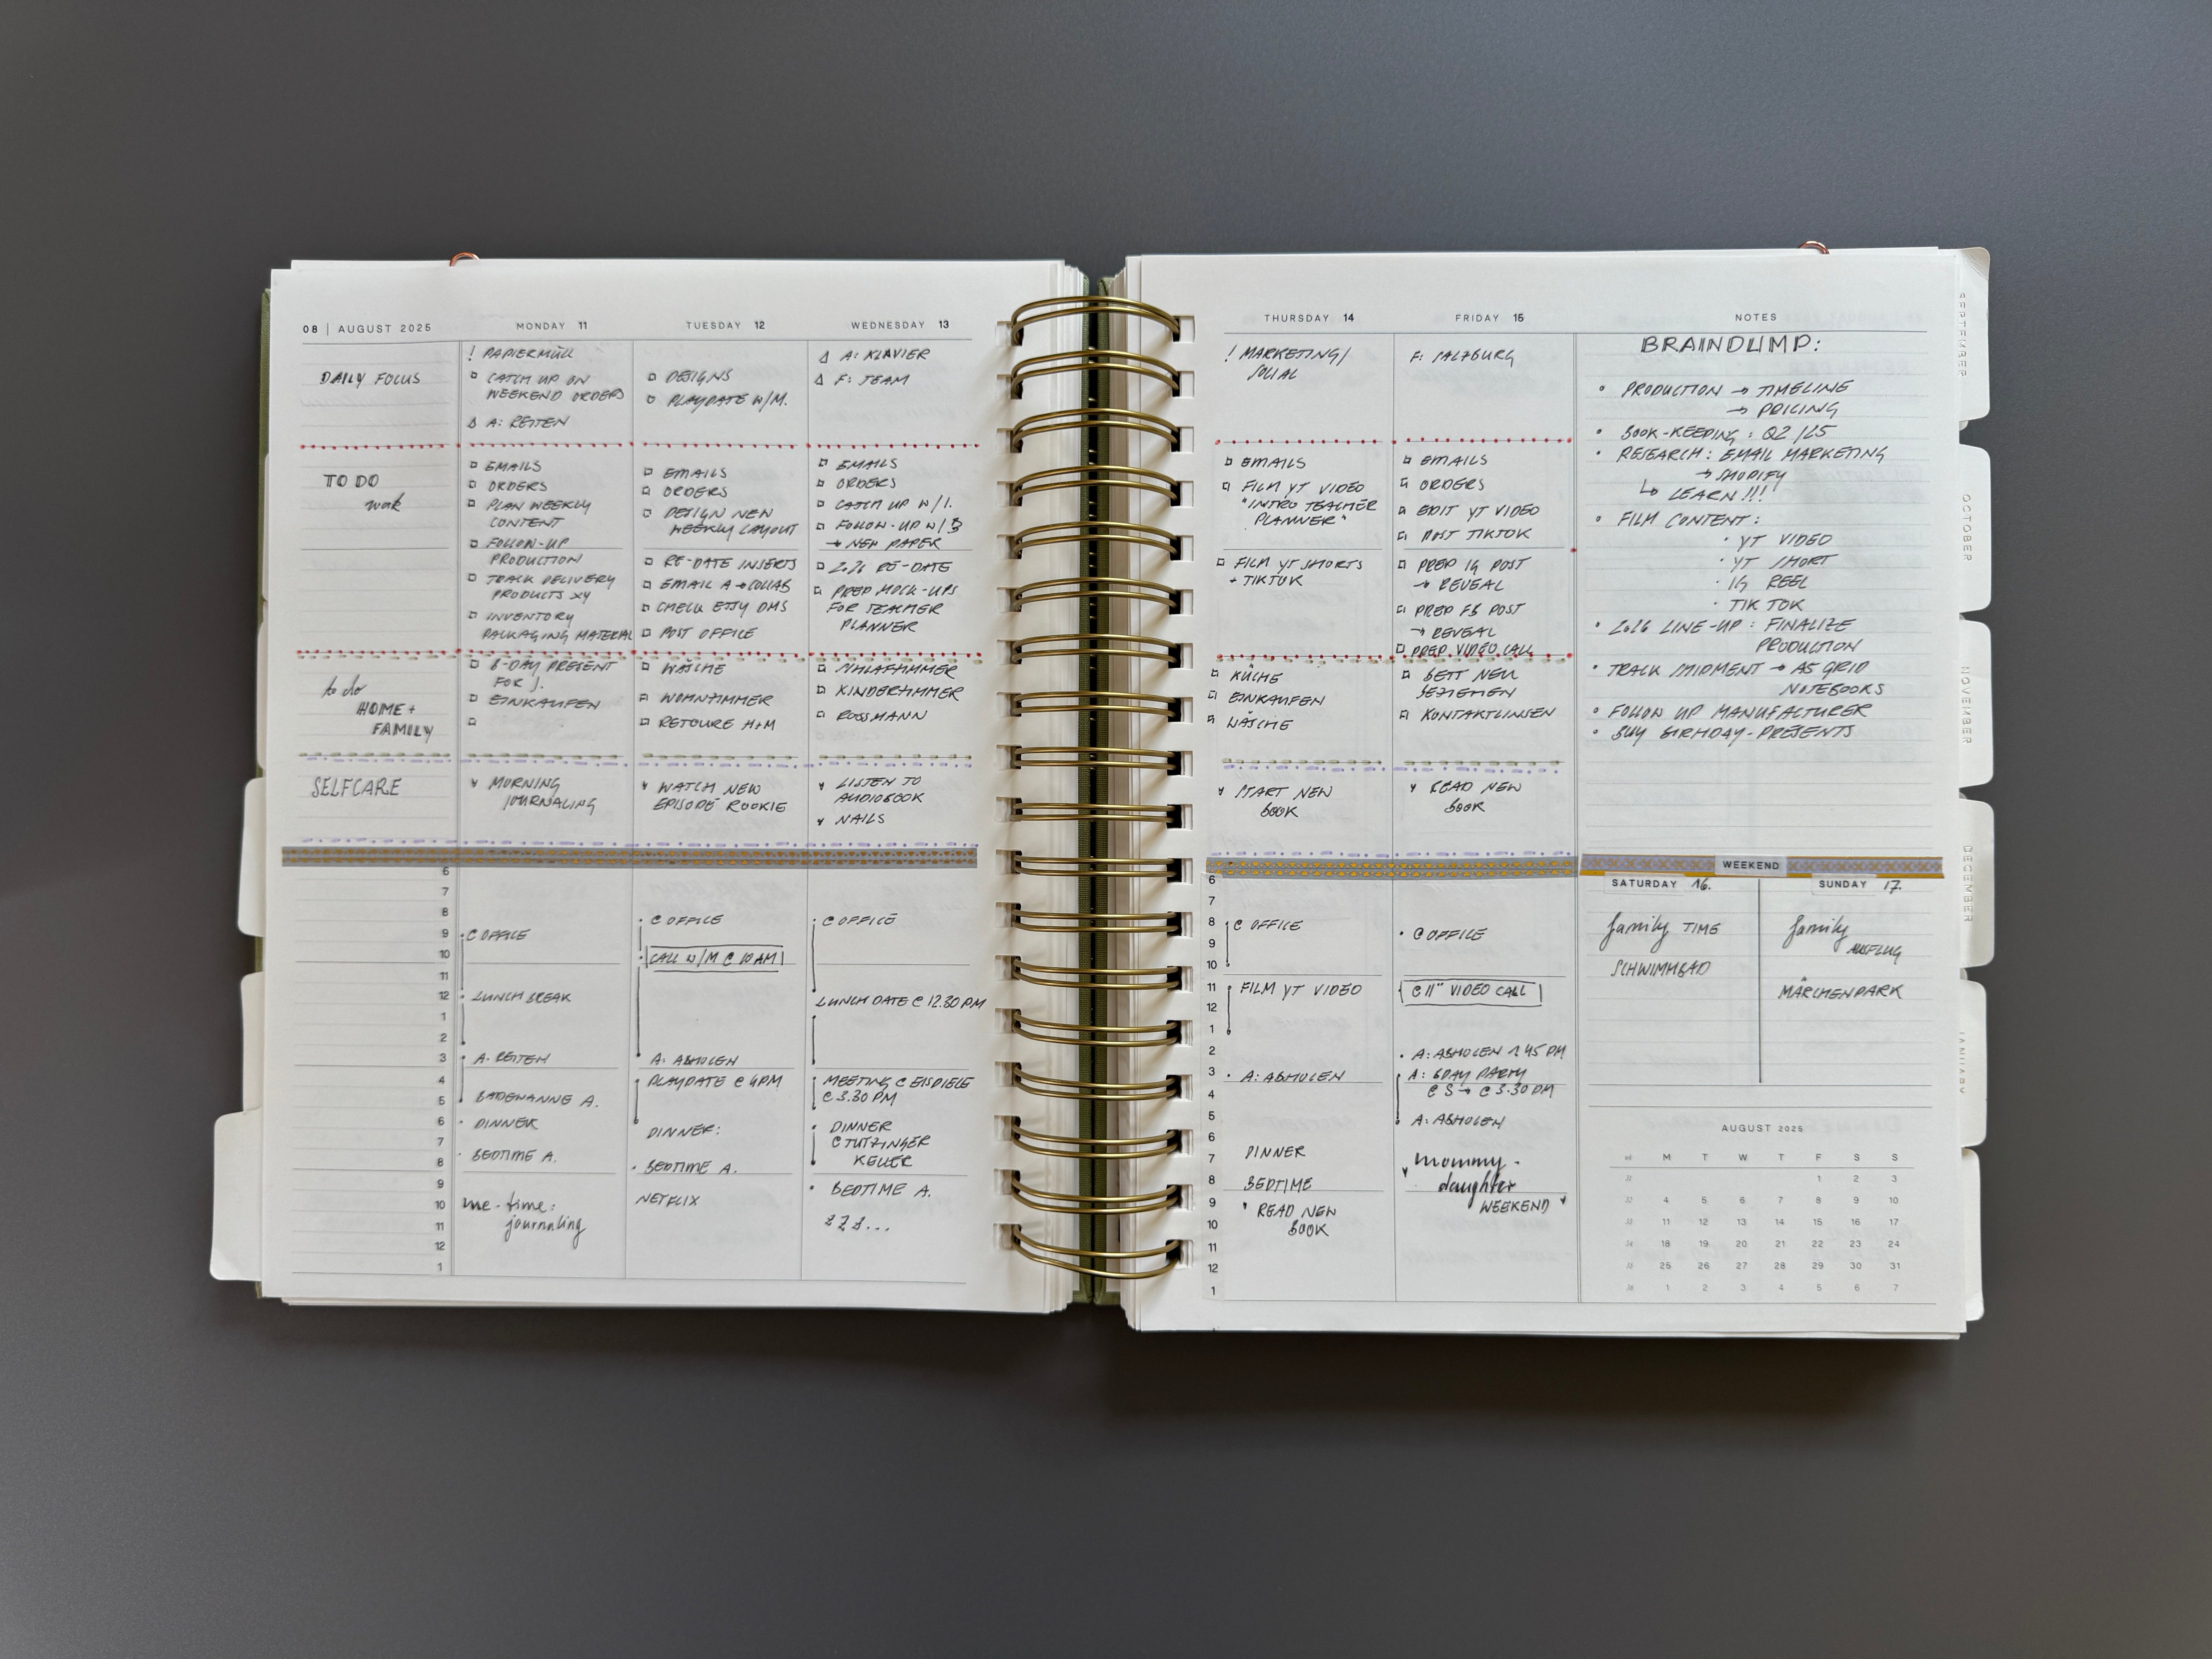 08 | AUGUST 2025
MONDAY 11
TUESDAY 12
WEDNESDAY 13
DAILY FOCUS
! PAPIERMÜLL
CATCH UP ON
WEEKEND ORDERS
A: REITEN
DESIGNS
PLAYDATE W/M.
A: KLAVIER
F: TEAM
TO DO
work
EMAILS
ORDERS
PLAN WEEKLY
CONTENT
FOLLOW-UP
PRODUCTION
TRACK DELIVERY
PRODUCTS XY
INVENTORY
PACKAGING MATERIAL
EMAILS
ORDERS
DESIGN NEW
WEEKLY LAYOUT
RE-DATE INSERTS
EMAIL A → COLLAB
CHECK ETSY DMS
POST OFFICE
EMAILS
ORDERS
CATCH UP W/ I.
FOLLOW-UP W/ B
→ NEW PAPER
2026 RE-DATE
PREP MOCK-UPS
FOR TEACHER
PLANNER
to do
HOME +
FAMILY
B-DAY PRESENT
FOR J.
EINKAUFEN
WÄSCHE
WOHNZIMMER
RETOURE H+M
SCHLAFZIMMER
KINDERZIMMER
ROSSMANN
SELFCARE
MORNING
JOURNALING
WATCH NEW
EPISODE ROOKIE
LISTEN TO
AUDIOBOOK
NAILS
6
7
8
9
10
11
12
1
2
3
4
5
6
7
8
9
10
11
12
1
@ OFFICE
LUNCH BREAK
A: REITEN
BADEWANNE A.
DINNER
BEDTIME A.
me-time:
journaling
@ OFFICE
CALL W/M @ 10 AM
A: ABHOLEN
PLAYDATE @ 4PM
DINNER:
BEDTIME A.
NETFLIX
@ OFFICE
LUNCH DATE @ 12.30 PM
MEETING @ EISDIELE
@ 3.30 PM
DINNER
@ TUTZINGER
KELLER
BEDTIME A.
ZZZ...
THURSDAY 14
FRIDAY 15
NOTES
! MARKETING/
SOCIAL
F: SALZBURG
EMAILS
FILM YT VIDEO
"INTRO TEACHER
PLANNER"
FILM YT SHORTS
+ TIKTOK
EMAILS
ORDERS
EDIT YT VIDEO
POST TIKTOK
PREP IG POST
→ REVEAL
PREP FB POST
→ REVEAL
PREP VIDEO CALL
KÜCHE
EINKAUFEN
WÄSCHE
BETT NEU
BEZIEHEN
KONTAKTLINSEN
START NEW
BOOK
READ NEW
BOOK
6
7
8
9
10
11
12
1
2
3
4
5
6
7
8
9
10
11
12
1
@ OFFICE
FILM YT VIDEO
A: ABHOLEN
DINNER
BEDTIME
READ NEW
BOOK
@ OFFICE
@ 11 VIDEO CALL
A: ABHOLEN 1.45 PM
A: BDAY PARTY
@ S → @ 3.30 PM
A: ABHOLEN
mommy-
daughter
WEEKEND
BRAINDUMP:
PRODUCTION → TIMELINE
→ PRICING
BOOK-KEEPING: Q2/25
RESEARCH: EMAIL MARKETING
→ SHOPIFY
↳ LEARN!!!
FILM CONTENT:
YT VIDEO
YT SHORT
IG REEL
TIK TOK
2026 LINE-UP: FINALIZE
PRODUCTION
TRACK SHIPMENT → A5 GRID
NOTEBOOKS
FOLLOW UP MANUFACTURER
BUY BIRTHDAY-PRESENTS
WEEKEND
SATURDAY 16.
SUNDAY 17.
family TIME
SCHWIMMBAD
family
AUSFLUG
MÄRCHENPARK
AUGUST 2025
M T W T F S S
1 2 3
4 5 6 7 8 9 10
11 12 13 14 15 16 17
18 19 20 21 22 23 24
25 26 27 28 29 30 31
1 2 3 4 5 6 7
SEPTEMBER
OCTOBER
NOVEMBER
DECEMBER
JANUARY